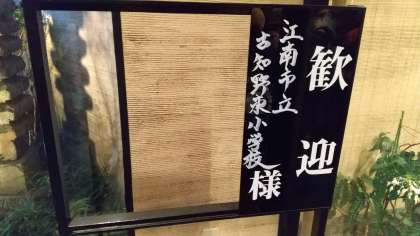 歓迎
江南市立
古知野東小学校様